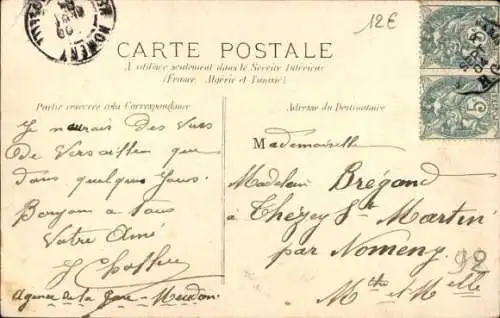 12€
NOMENY
CARTE POSTALE
A utiliser seulement dans le Service Intérieur
(France, Algérie et Tunisie)
Partie réservée à la Correspondance
Adresse du Destinataire
5
5
Je n'aurais des Vues
de Versailles que
dans quelques Jours.
Bonjour à tous
Votre Ami
Agence de la Gare - Meudon
Mademoiselle
Madelein Brégand
à Thézey St Martin
par Nomeny
Mthe et Mlle
98